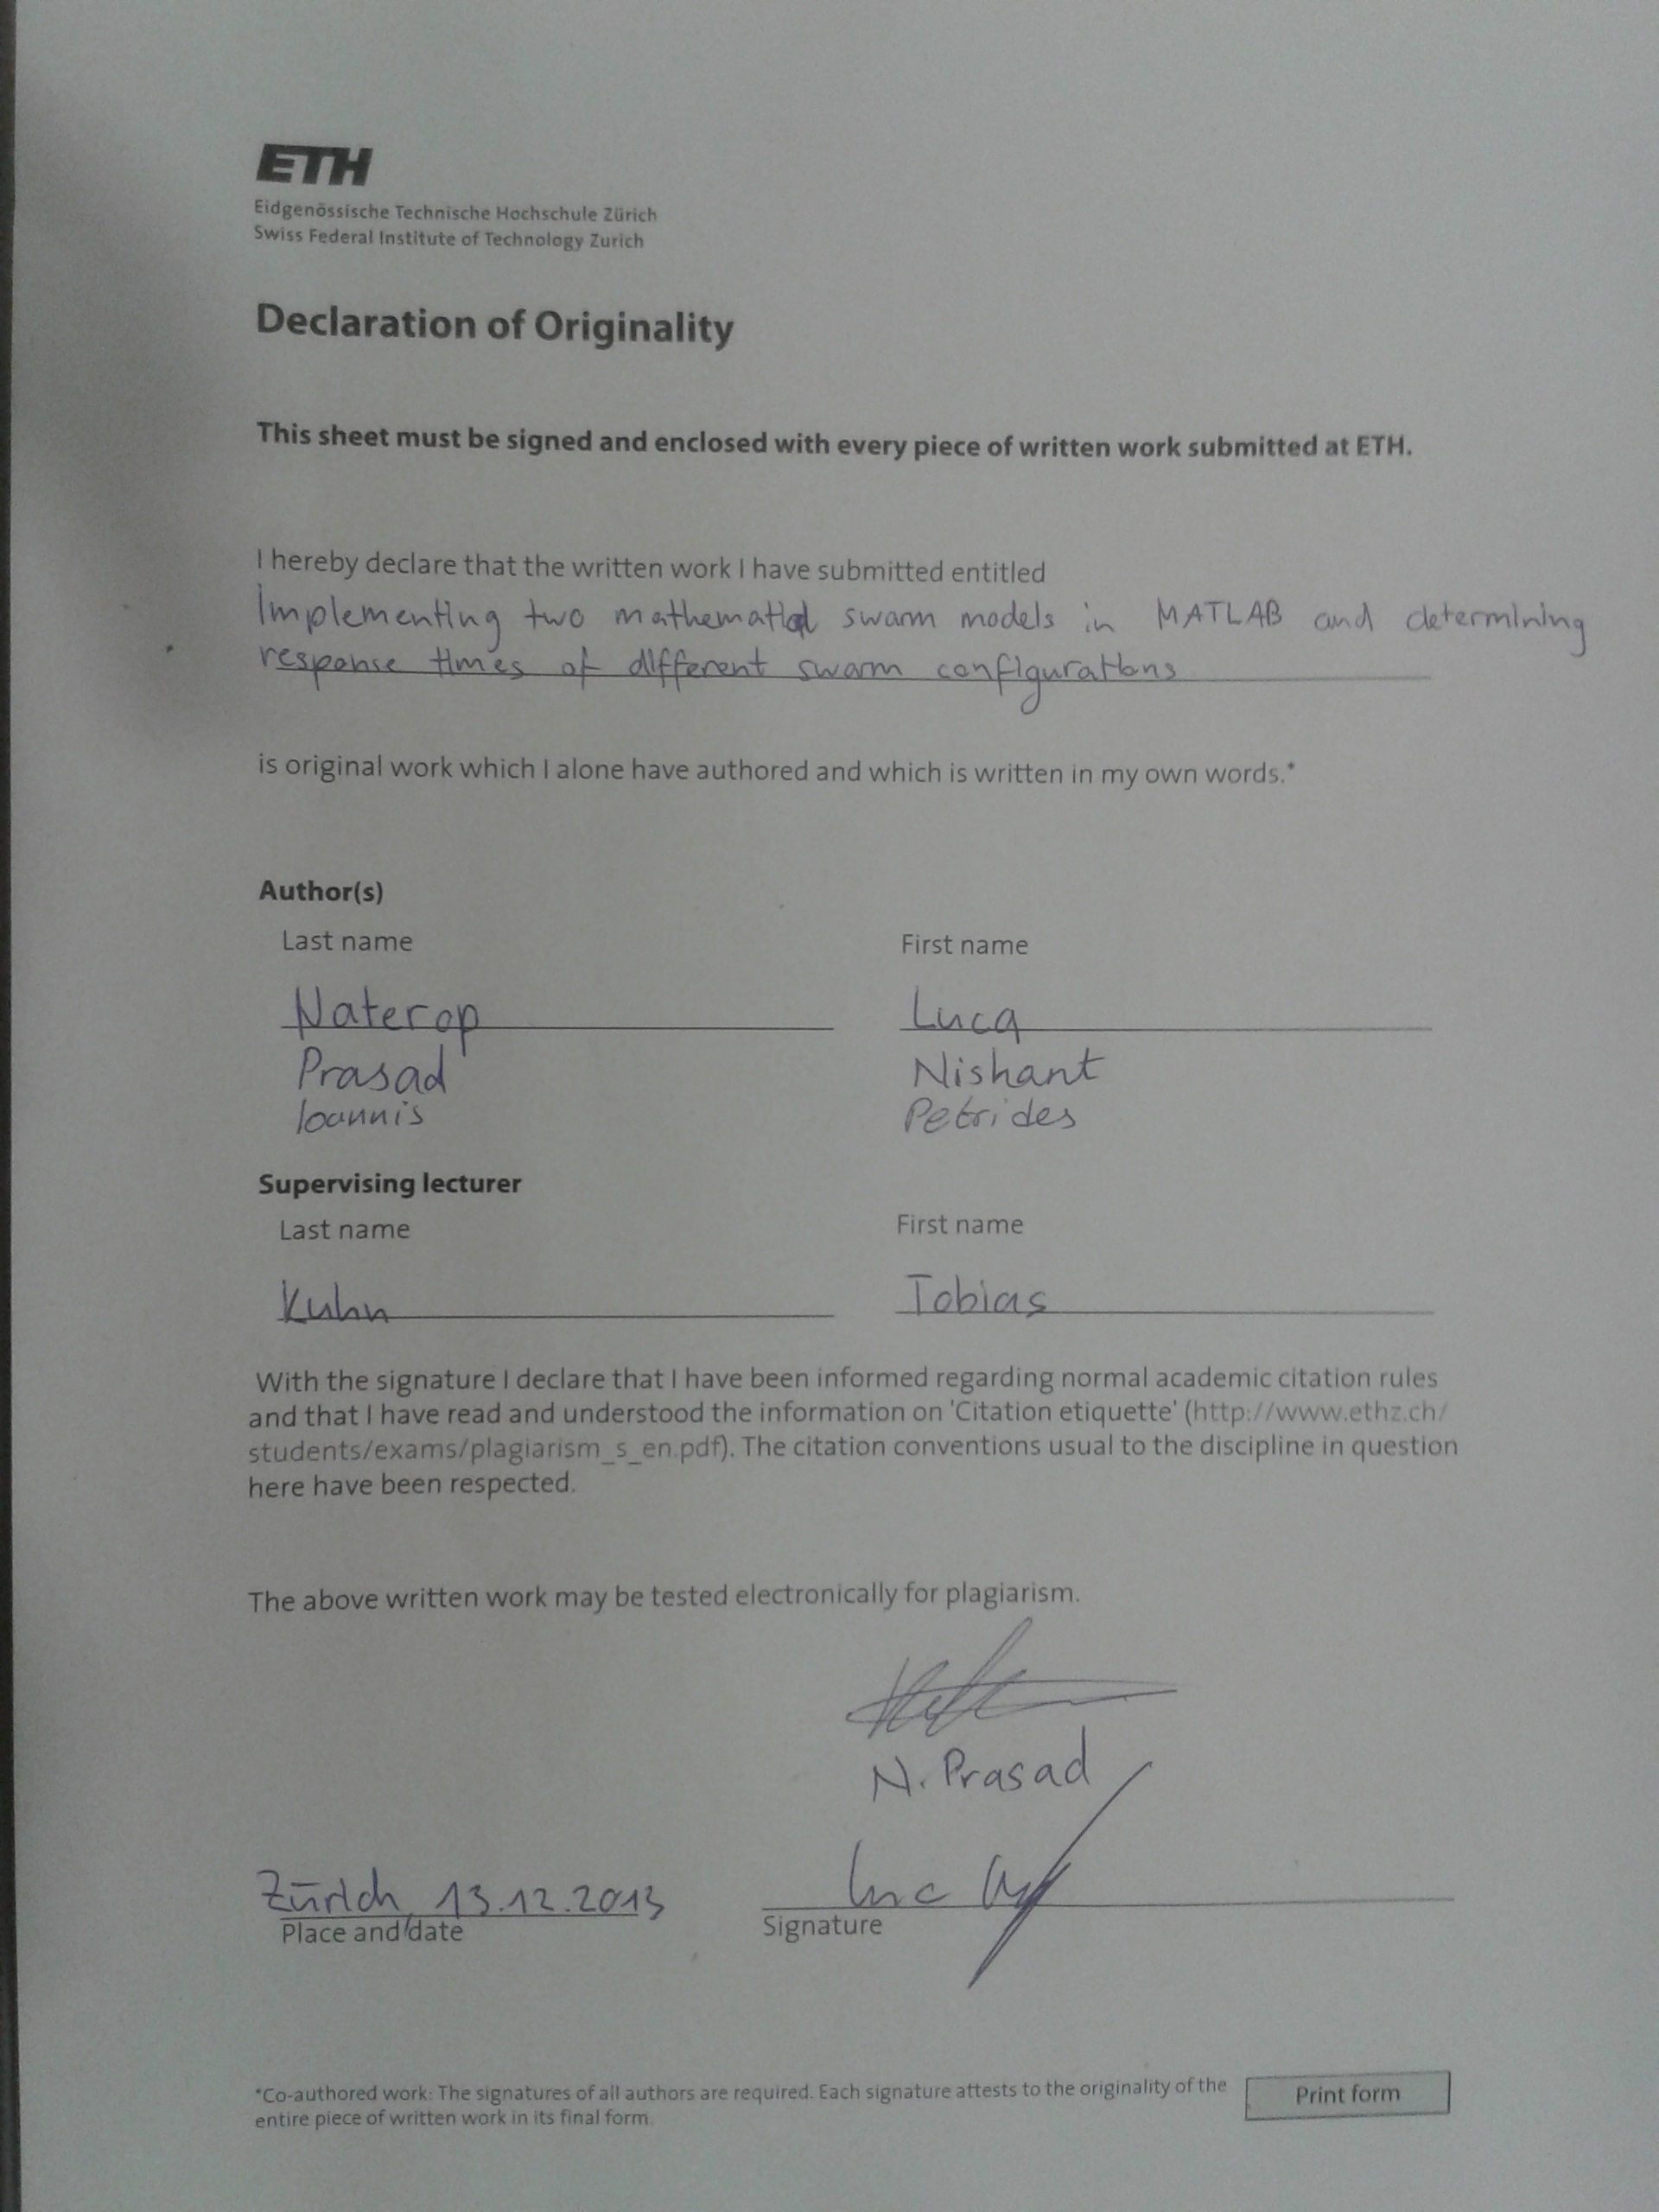 ETH
Eidgenössische Technische Hochschule Zürich
Swiss Federal Institute of Technology Zurich
Declaration of Originality
This sheet must be signed and enclosed with every piece of written work submitted at ETH.
I hereby declare that the written work I have submitted entitled
Implementing two mathematical swarm models in MATLAB and determining
response times of different swarm configurations
is original work which I alone have authored and which is written in my own words.*
Author(s)
Last name First name
Naterop Luca
Prasad Nishant
Ioannis Petrides
Supervising lecturer
Last name First name
Kuhn Tobias
With the signature I declare that I have been informed regarding normal academic citation rules
and that I have read and understood the information on 'Citation etiquette' (http://www.ethz.ch/
students/exams/plagiarism_s_en.pdf). The citation conventions usual to the discipline in question
here have been respected.
The above written work may be tested electronically for plagiarism.
N. Prasad
Zürich, 13.12.2013
Place and date Signature
*Co-authored work: The signatures of all authors are required. Each signature attests to the originality of the
entire piece of written work in its final form.
Print form